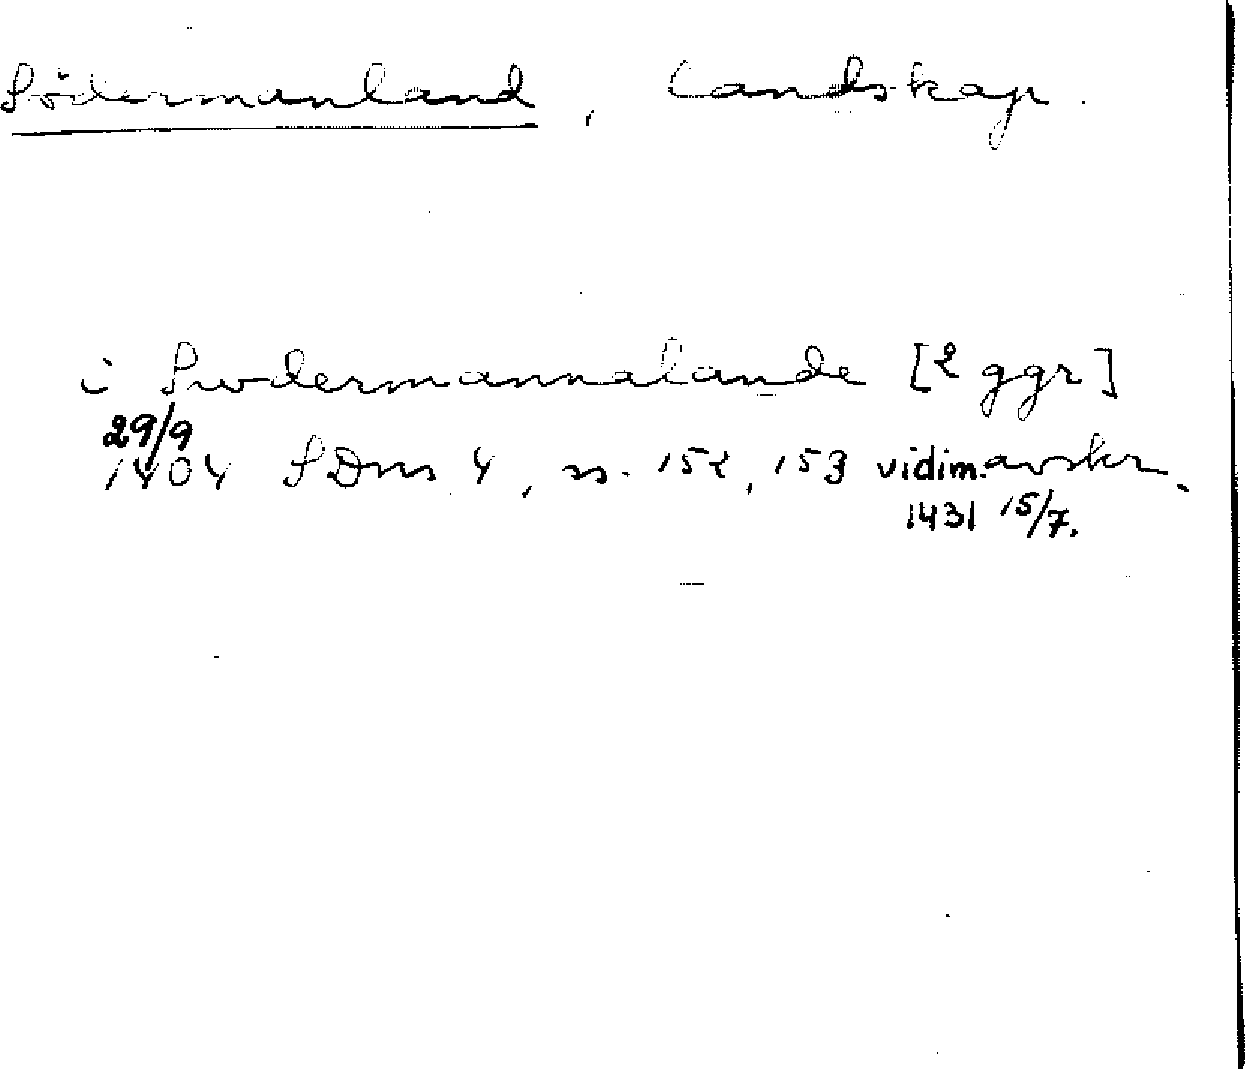 Södermanland, landskap.
i Swdermannalande [2 ggr]
29/9
1404 SDns 4, s. 152, 153 vidim. avskr.
1431 15/7.